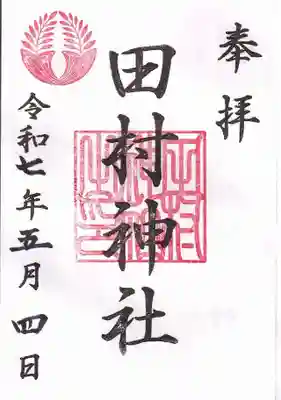 奉拝
田村神社
令和七年五月四日